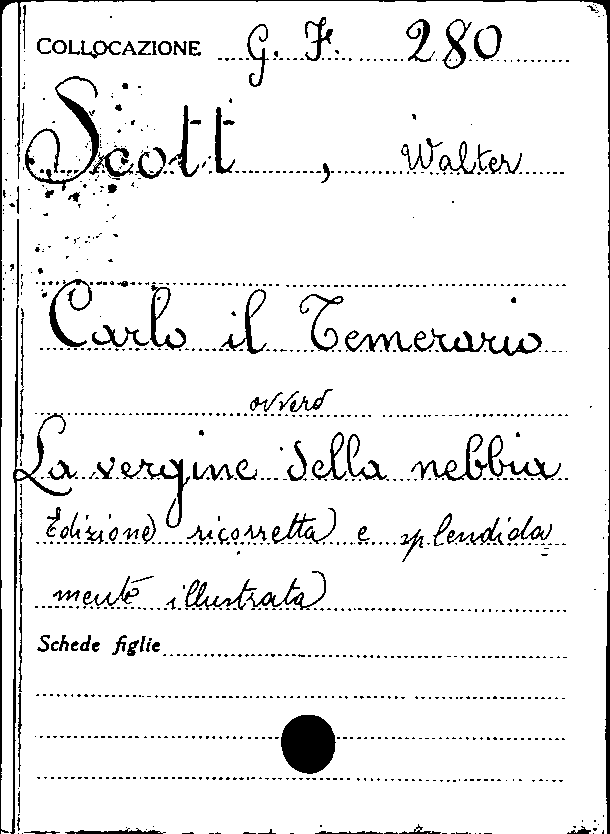 COLLOCAZIONE G. F. 280
Scott, Walter
Carlo il Temerario
ovvero
La vergine della nebbia
Edizione ricorretta e splendida=
mente illustrata
Schede figlie